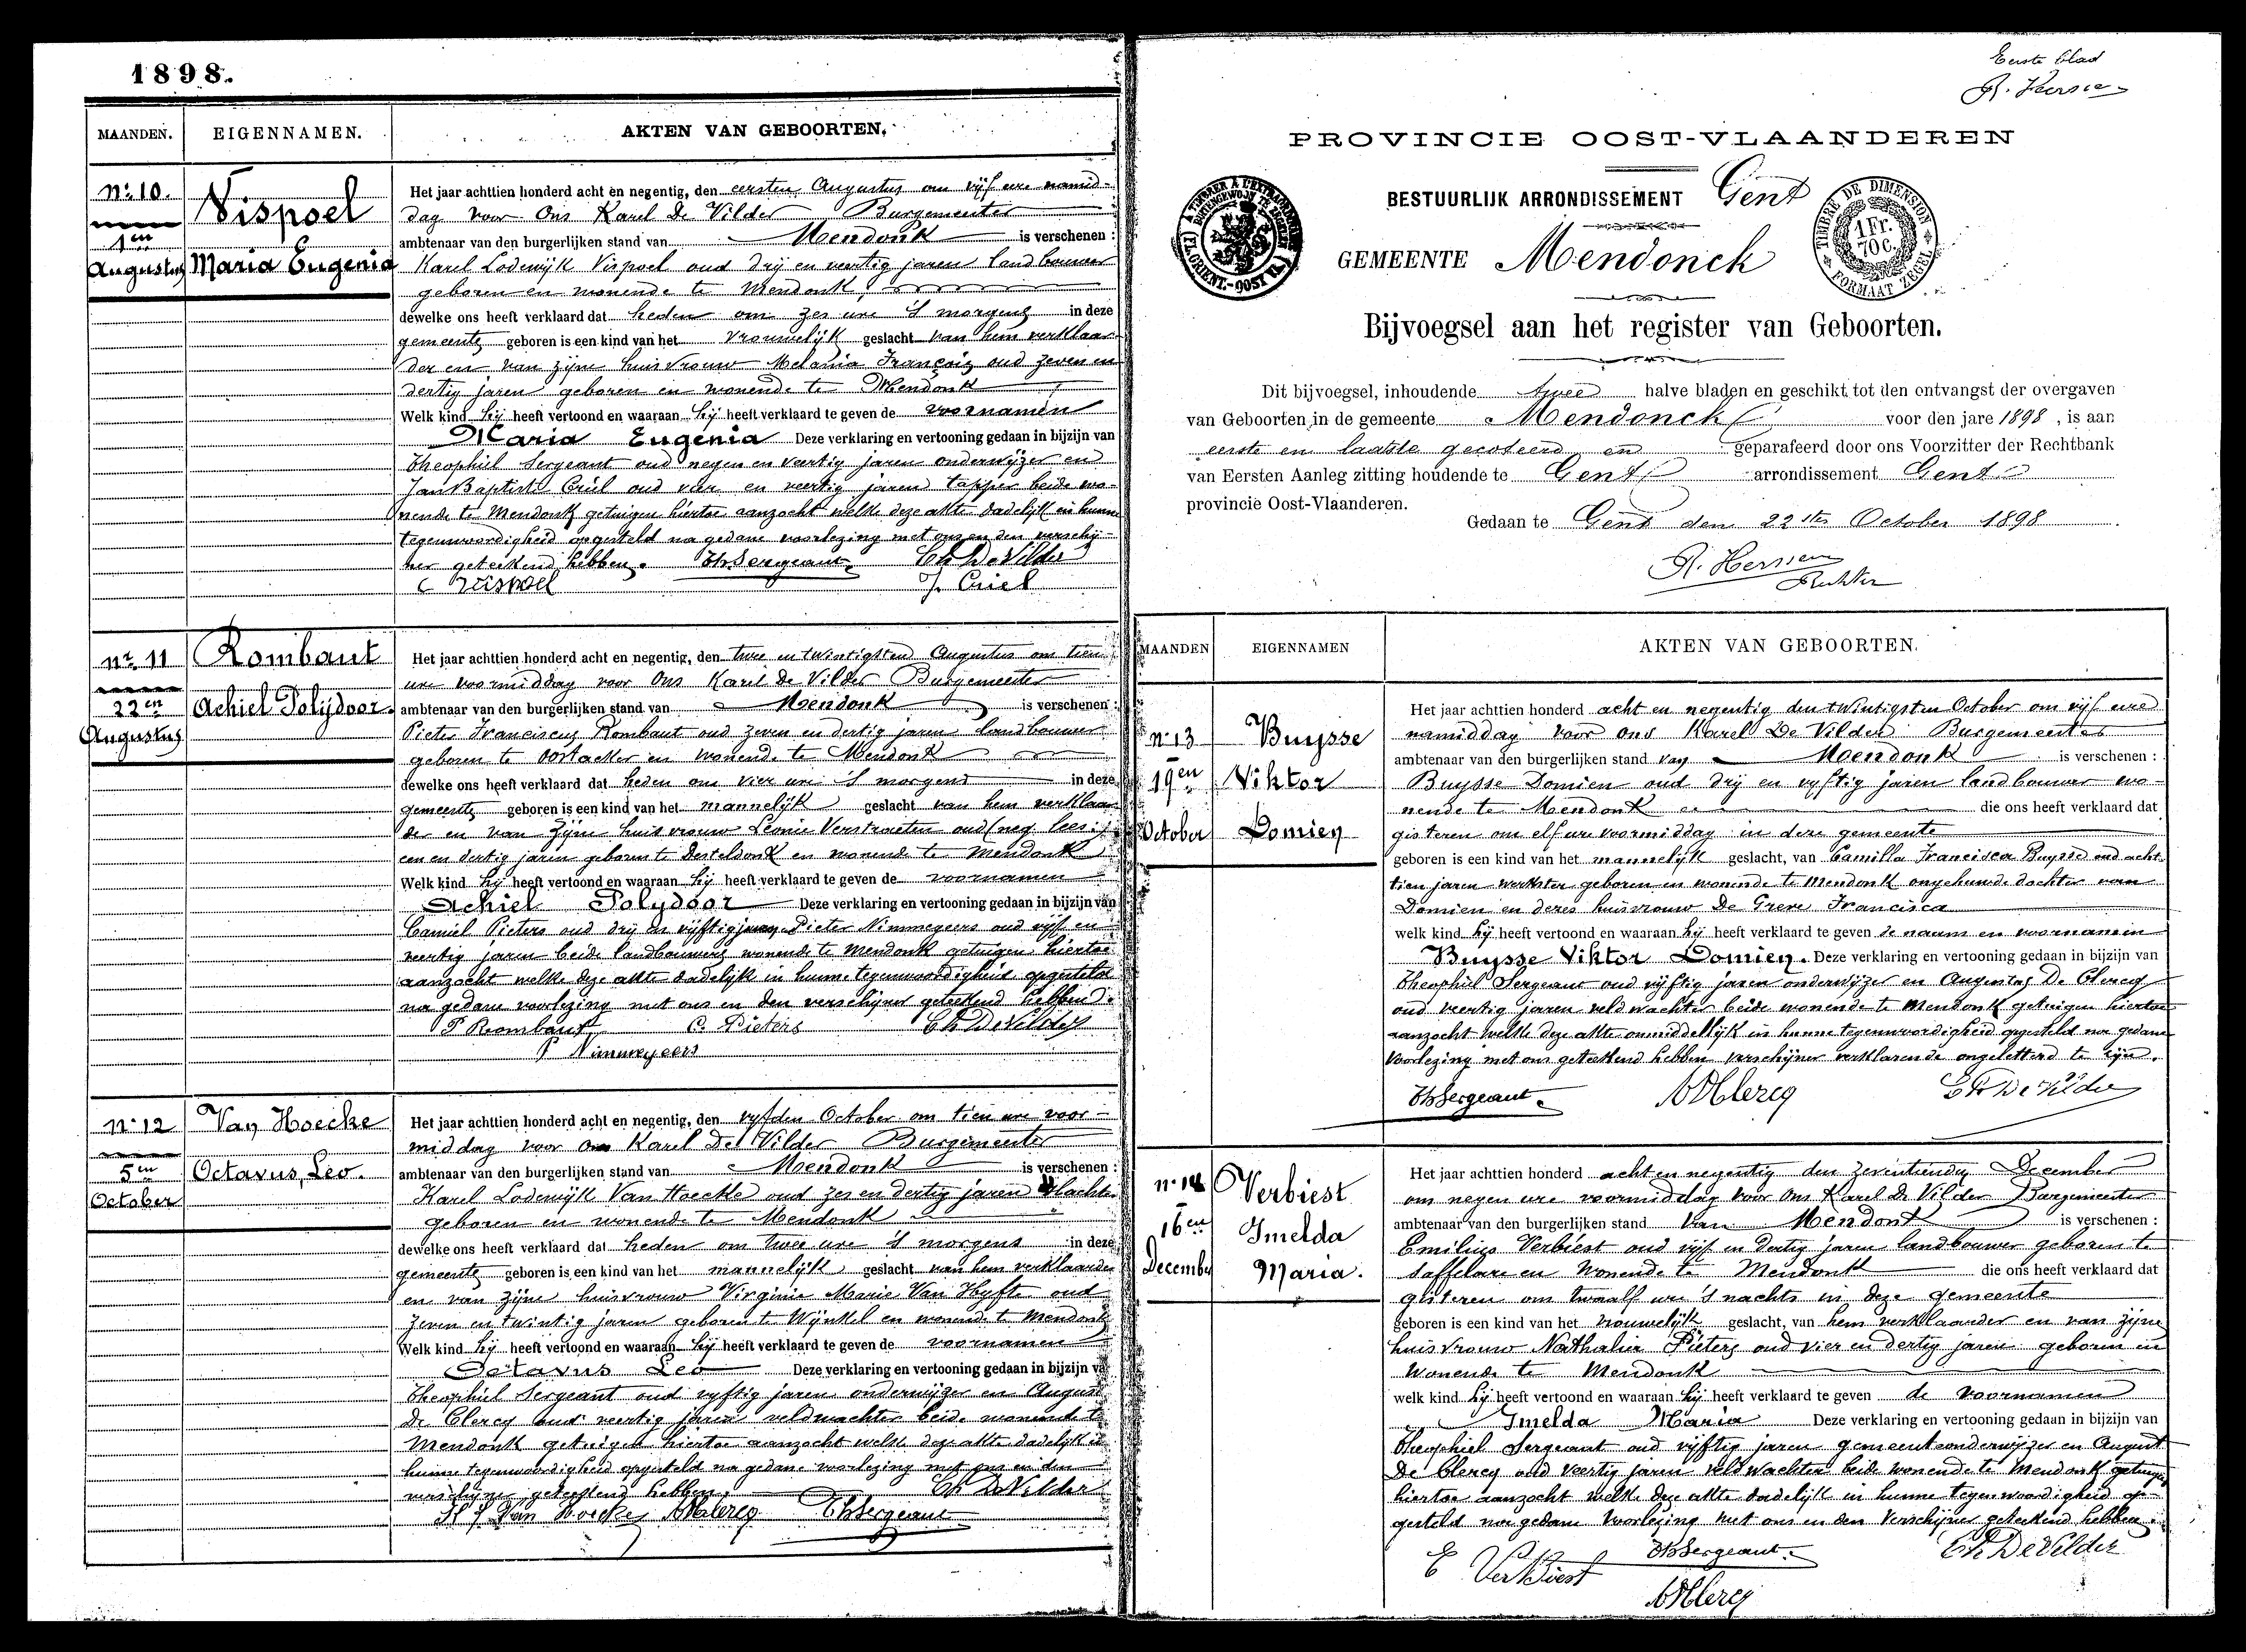 1898.
MAANDEN. EIGENNAMEN. AKTEN VAN GEBOORTEN.
No. 10.
1en
Augustus
Vispoel
Maria Eugenia
Het jaar achttien honderd acht en negentig, den eersten Augustus om vijf ure namid-
dag voor Ons Karel De Vilder Burgemeester
ambtenaar van den burgerlijken stand van Mendonk is verschenen :
Karel Lodewijk Vispoel oud drij en veertig jaren landbouwer
geboren en wonende te Mendonk,
dewelke ons heeft verklaard dat heden om zes ure 's morgens in deze
gemeente geboren is een kind van het vrouwelijk geslacht van hem verklaar-
der en van zijne huisvrouw Melania François oud zeven en
dertig jaren geboren en wonende te Mendonk
Welk kind hij heeft vertoond en waaraan hij heeft verklaard te geven de voornamen
Maria Eugenia Deze verklaring en vertooning gedaan in bijzijn van
Theophiel Sergeant oud negen en veertig jaren onderwijzer en
Jan Baptist Criel oud vier en veertig jaren tapper beide wo-
nende te Mendonk getuigen hiertoe aanzocht welke deze akte dadelijk in hunne
tegenwoordigheid opgesteld na gedane voorlezing met ons en den verschij-
ner geteekend hebben. Th Sergeant Ch De Vilder
C Vispoel J. Criel
No. 11
22en
Augustus
Rombaut
Achiel Polijdoor.
Het jaar achttien honderd acht en negentig, den twee en twintigsten Augustus om tien
ure voormiddag voor Ons Karel De Vilder Burgemeester
ambtenaar van den burgerlijken stand van Mendonk is verschenen :
Pieter Franciscus Rombaut oud zeven en dertig jaren landbouwer
geboren te Oostacker en wonende te Mendonk
dewelke ons heeft verklaard dat heden om vier ure 's morgens in deze
gemeente geboren is een kind van het mannelijk geslacht van hem verklaar
der en van zijne huisvrouw Leonie Verstraeten oud
een en dertig jaren geboren te Desteldonk en wonende te Mendonk
Welk kind hij heeft vertoond en waaraan hij heeft verklaard te geven de voornamen
Achiel Polydoor Deze verklaring en vertooning gedaan in bijzijn van
Camiel Pieters oud drij en vijftig jaren Pieter Nimmegeers oud vijf en
veertig jaren beide landbouwers wonende te Mendonk getuigen hiertoe
aanzocht welke deze akte dadelijk in hunne tegenwoordigheid opgesteld
na gedane voorlezing met ons en den verschijner geteekend hebben.
P Rombaut C. Pieters Ch De Vilder
P Nimmegeers
No. 12
5en
October
Van Hoecke
Octavus, Leo.
Het jaar achttien honderd acht en negentig, den vyfden October om tien ure voor-
middag voor ons Karel De Vilder Burgemeester
ambtenaar van den burgerlijken stand van Mendonk is verschenen :
Karel Lodewijk Van Hoecke oud zes en dertig jaren
geboren en wonende te Mendonk
dewelke ons heeft verklaard dat heden om twee ure 's morgens in deze
gemeente geboren is een kind van het mannelijk geslacht van hem verklaarder
en van zijne huisvrouw Virginie Marie Van Hyfte oud
zeven en twintig jaren geboren te Wynkel en wonende te Mendonk
Welk kind hij heeft vertoond en waaraan hij heeft verklaard te geven de voornamen
Octavus Leo Deze verklaring en vertooning gedaan in bijzijn va
Theophiel Sergeant oud vyftig jaren onderwijzer en August
De Clercq oud veertig jaren veldwachter beide wonende te
Mendonk getuigen hiertoe aanzocht welke deze akte dadelijk in
hunne tegenwoordigheid opgesteld na gedane voorlezing met ons en den
verschijner geteekend hebben. Ch De Vilder
K L Van Hoecke ADClercq Th Sergeant
Eerste blad
PROVINCIE OOST-VLAANDEREN
BESTUURLIJK ARRONDISSEMENT Gent
GEMEENTE Mendonck
TIMBRE DE DIMENSION
1 Fr.
70 C.
FORMAAT ZEGEL
Bijvoegsel aan het register van Geboorten.
Dit bijvoegsel, inhoudende twee halve bladen en geschikt tot den ontvangst der overgaven
van Geboorten in de gemeente Mendonck voor den jare 1898, is aan
eerste en laatste gecoteerd en geparafeerd door ons Voorzitter der Rechtbank
van Eersten Aanleg zitting houdende te Gent arrondissement Gent
provincie Oost-Vlaanderen.
Gedaan te Gent den 22sten October 1898
Rechter
MAANDEN EIGENNAMEN AKTEN VAN GEBOORTEN.
No 13
19en
October
Buysse
Viktor
Domien
Het jaar achttien honderd acht en negentig den twintigsten October om vijf ure
namiddag voor ons Karel De Vilder Burgemeester
ambtenaar van den burgerlijken stand van Mendonk is verschenen :
Buysse Domien oud drij en vyftig jaren landbouwer wo-
nende te Mendonk die ons heeft verklaard dat
gisteren om elf ure voormiddag in deze gemeente
geboren is een kind van het mannelijk geslacht, van Camilla Francisca Buysse oud acht-
tien jaren werkster geboren en wonende te Mendonk ongehuwde dochter van
Domien en dezes huisvrouw De Greve Francisca
welk kind hij heeft vertoond en waaraan hij heeft verklaard te geven de naam en voornamen
Buysse Viktor Domien. Deze verklaring en vertooning gedaan in bijzijn van
Theophiel Sergeant oud vijftig jaren onderwijzer en Augustus De Clercq
oud veertig jaren veldwachter beide wonende te Mendonk getuigen hiertoe
aanzocht welke deze akte onmiddellijk in hunne tegenwoordigheid opgesteld na gedane
voorlezing met ons geteekend hebben verschijner verklarende ongeletterd te zijn.
Th Sergeant ADClercq Ch De Vilder
No. 14
16en
December
Verbiest
Imelda
Maria.
Het jaar achttien honderd acht en negentig den zeventienden December
om negen ure voormiddag voor Ons Karel De Vilder Burgemeester
ambtenaar van den burgerlijken stand van Mendonk is verschenen :
Emilius Verbiest oud vijf en dertig jaren landbouwer geboren te
Saffelare en wonende te Mendonk die ons heeft verklaard dat
gisteren om twaalf ure 's nachts in deze gemeente
geboren is een kind van het vrouwelijk geslacht, van hem verklaarder en van zijne
huisvrouw Nathalia Pieters oud vier en dertig jaren geboren en
wonende te Mendonk
welk kind hij heeft vertoond en waaraan hij heeft verklaard te geven de voornamen
Imelda Maria Deze verklaring en vertooning gedaan in bijzijn van
Theophiel Sergeant oud vijftig jaren gemeenteonderwijzer en August
De Clercq oud veertig jaren veldwachter beide wonende te Mendonk getuigen
hiertoe aanzocht welke deze akte dadelijk in hunne tegenwoordigheid op-
gesteld na gedane voorlezing met ons en den verschijner geteekend hebben.
E Verbiest Th Sergeant Ch De Vilder
ADClercq